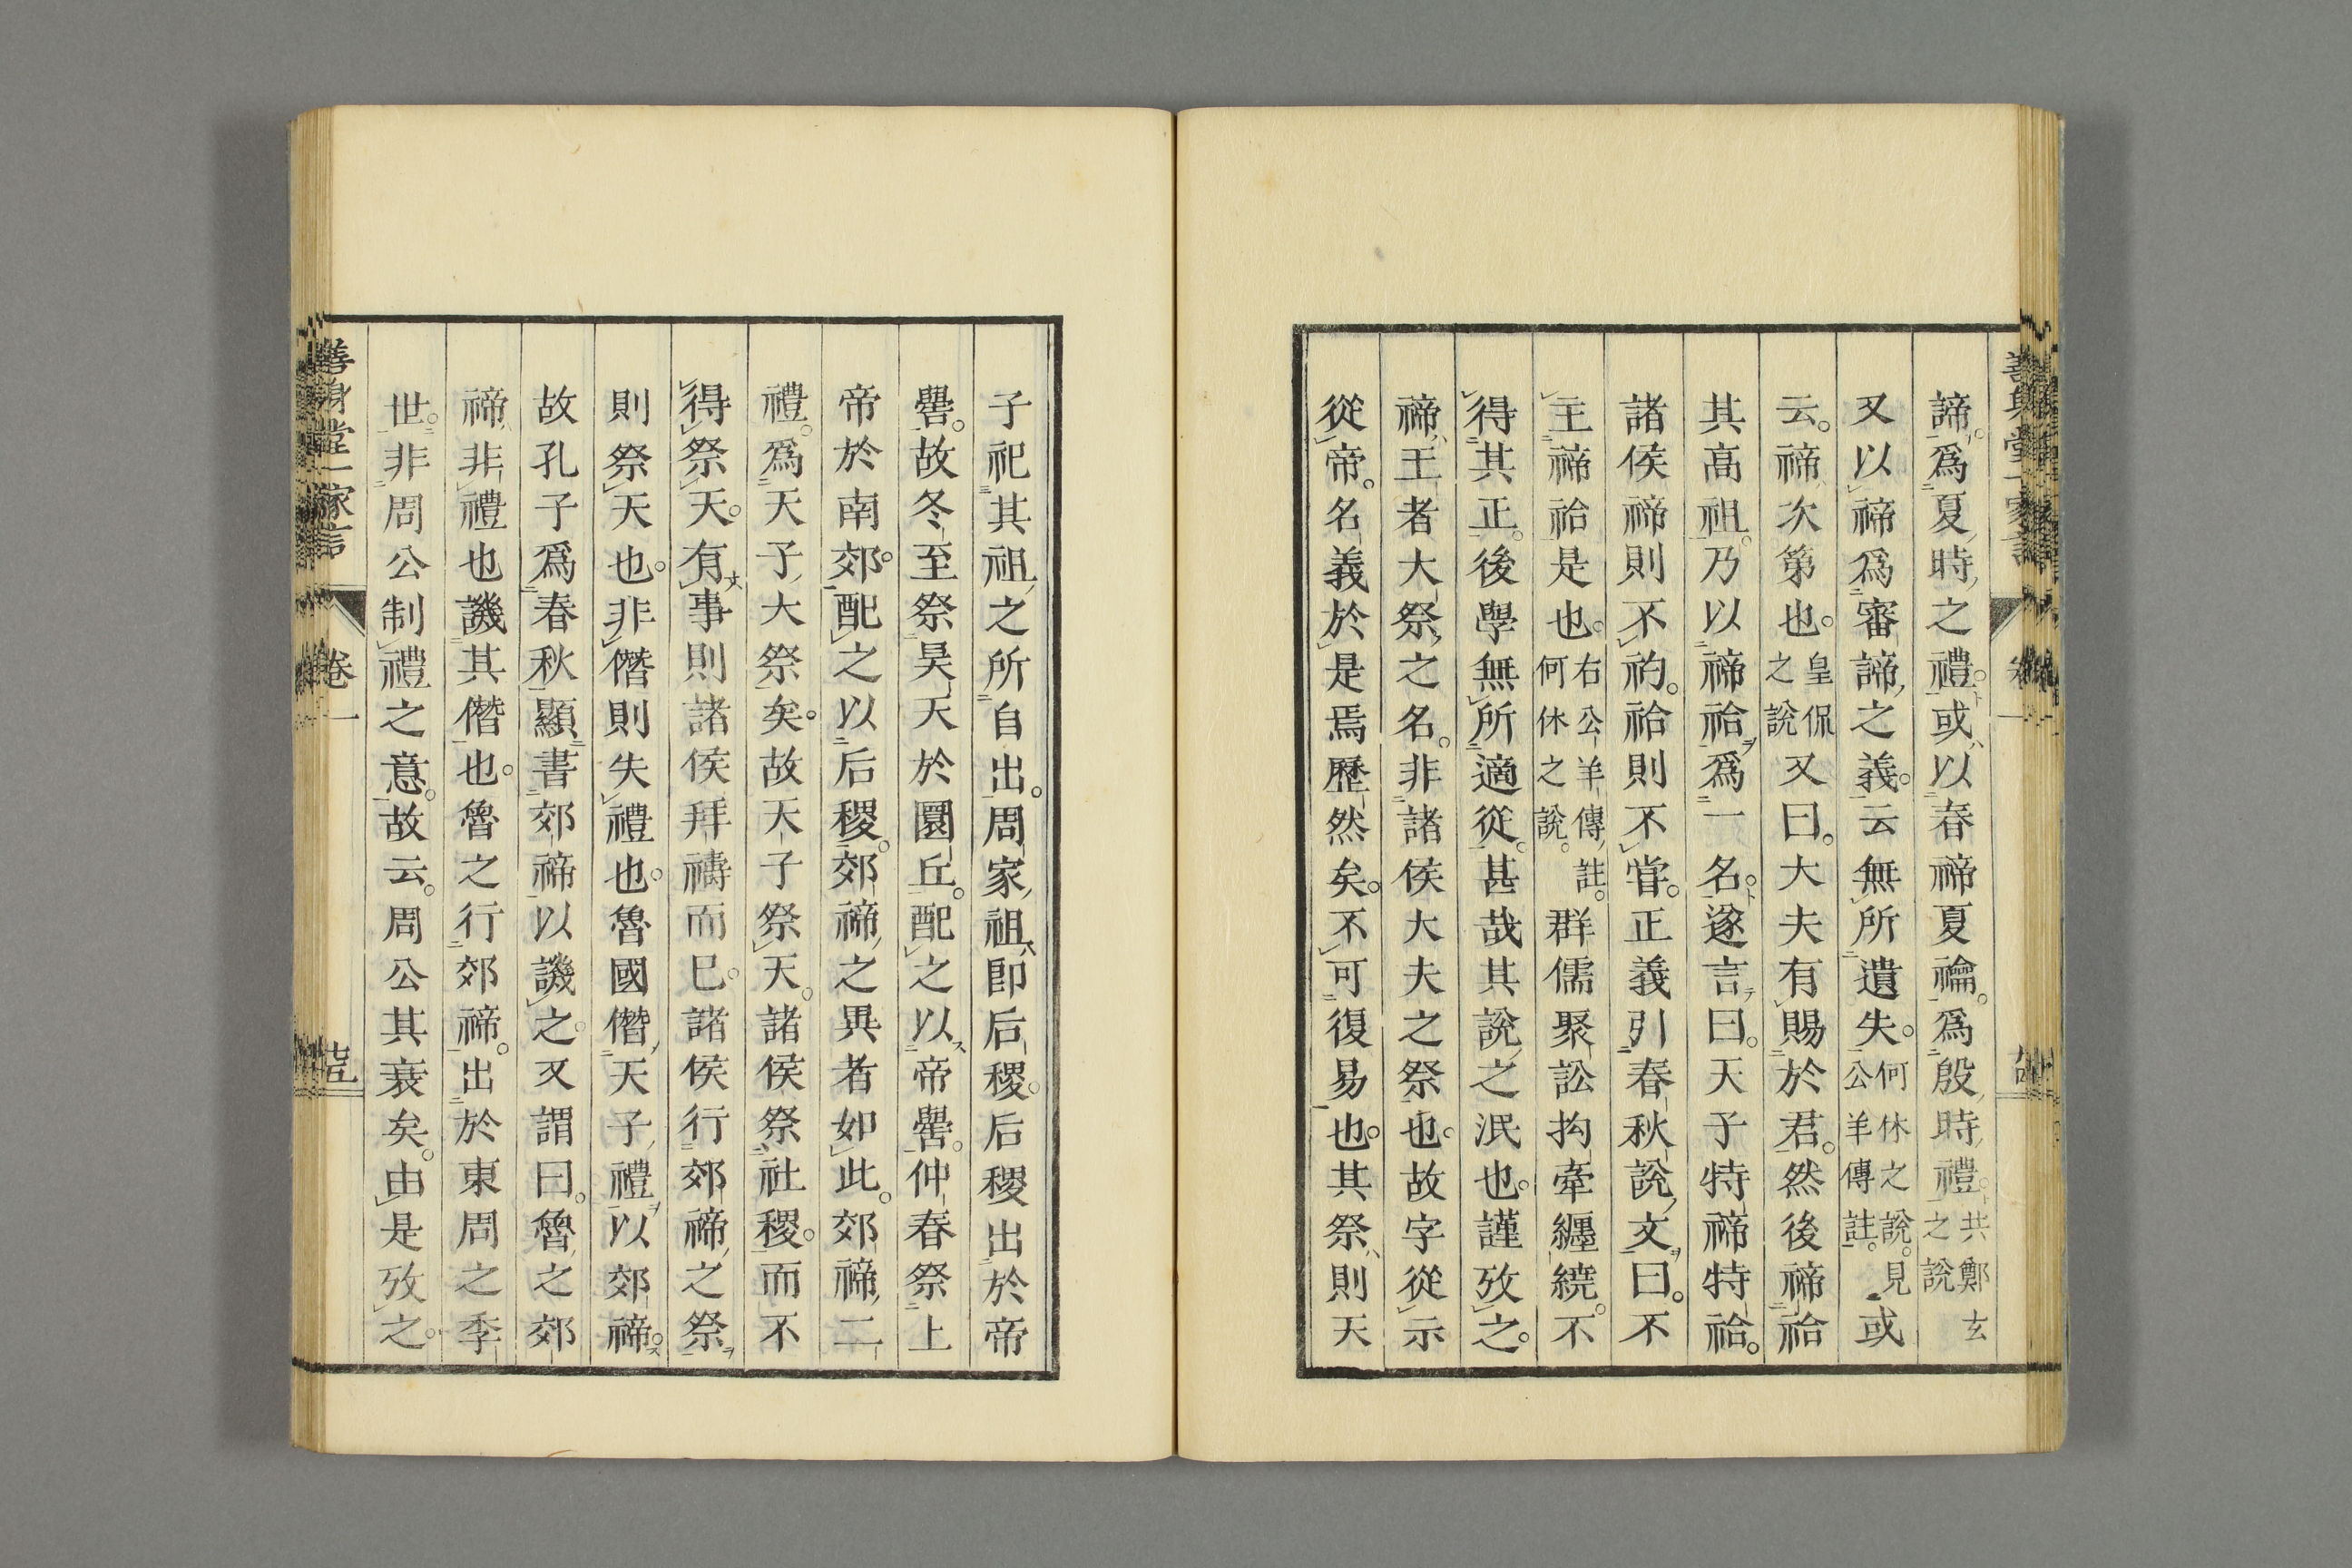 諦。爲夏時之禮。或以春禘夏禴。爲殷時禮。共鄭玄之說
又以禘爲審諦之義。云無所遺失。何休之說。見公羊傳註。或
云。禘次第也。皇侃之說又曰。大夫有賜於君。然後禘祫
其高祖。乃以禘祫爲一名。遂言曰。天子特禘特祫。
諸侯禘則不礿。祫則不嘗。正義引春秋說文曰。不
王禘祫是也。右公羊傳註。何休之說。群儒聚訟拘牽纏繞。不
得其正。後學無所適從。甚哉其說之泯也。謹攷之。
禘王者大祭之名。非諸侯大夫之祭也。故字從示
從帝。名義於是焉歷然矣。不可復易也。其祭則天
子祀其祖之所自出。周家祖卽后稷。后稷出於帝
嚳。故冬至祭昊天於圜丘。配之以帝嚳。仲春祭上
帝於南郊。配之以后稷。郊禘之異者如此。郊禘二
禮。爲天子大祭矣。故天子祭天。諸侯祭社稷。而不
得祭天。有事則諸侯拜禱而已。諸侯行郊禘之祭
則祭天也。非僭則失禮也。魯國僭天子禮以郊禘。
故孔子爲春秋顯書郊禘以譏之。又謂曰。魯之郊
禘非禮也譏其僭也。魯之行郊禘。出於東周之季
世。非周公制禮之意。故云。周公其衰矣。由是攷之。
善身堂一家言
卷一